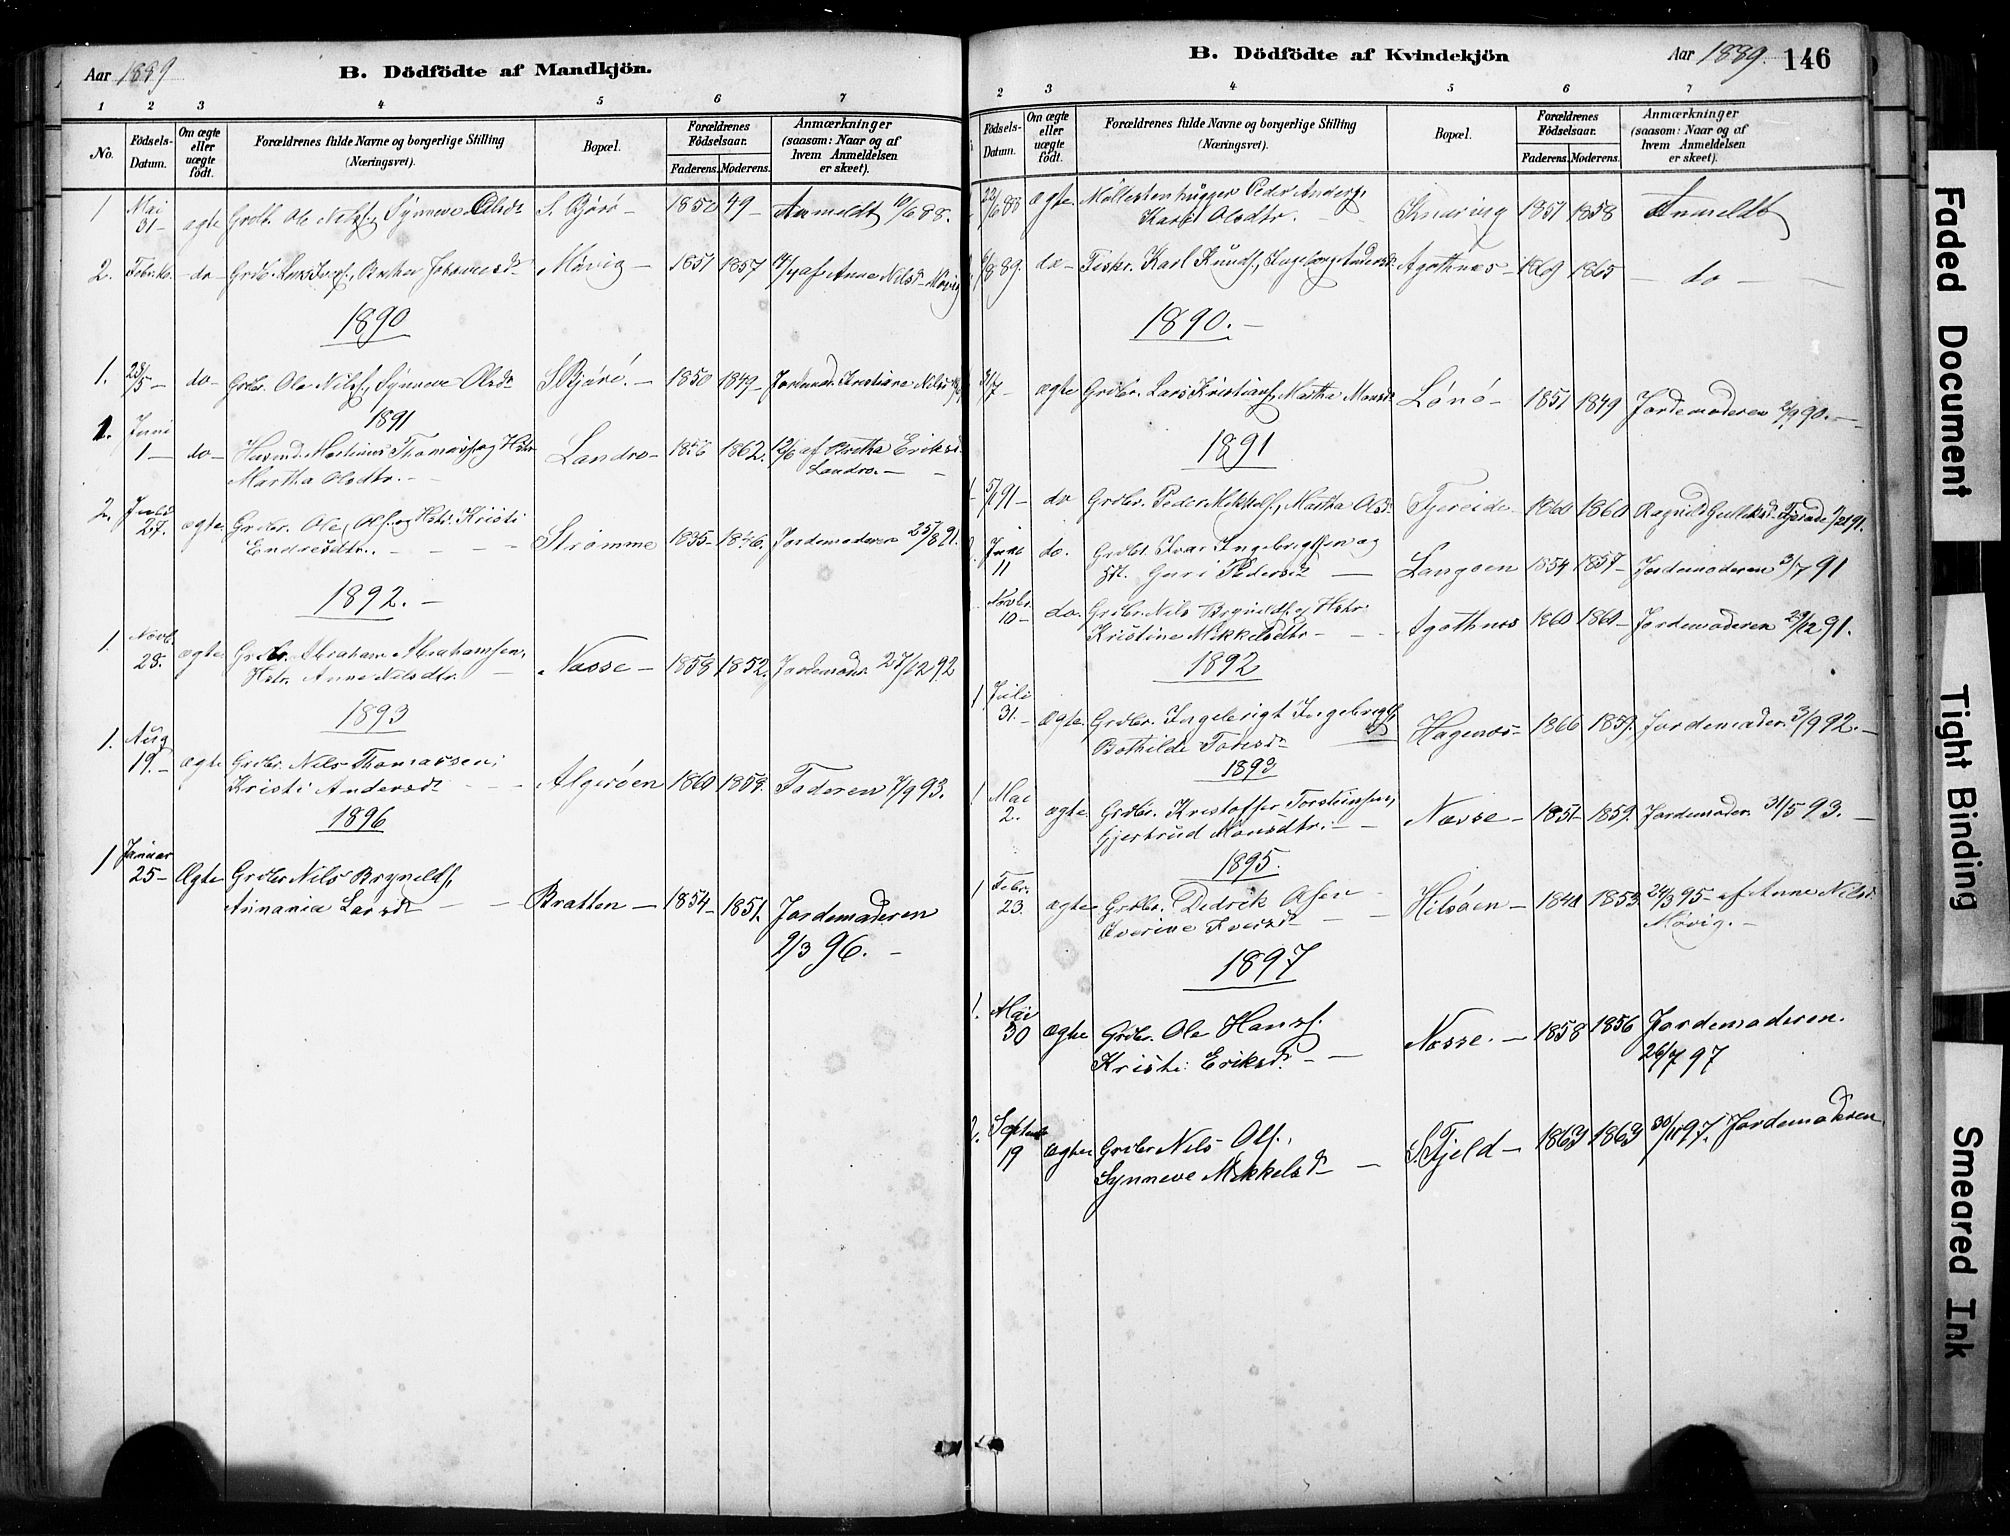 Aar 1889
B. Dödfödte af Mandkjön.
1 2 3 4 5 6 7
No.
Födsels-Datum.
Om ægte eller uægte födt.
Forældrenes fulde Navne og borgerlige Stilling (Næringsvei).
Bopæl.
Forældrenes Födselsaar.
Faderens. Moderens.
Anmærkninger (saasom: Naar og af hvem Anmeldelsen er skeet).
1 Mai 31 - ægte Grdb. Ole Nilsf., Synneve Olsdr S. Bjørø - 1850 49 - Anmeldt 10/6 88.
2. do - Grdb. Johannesdr Møvig - 1851 1857 af Anne Nilsdr Møvig
1890
1. 28/5 - do - Grdbr. Ole Nilsf., Synneve Olsdr S. Bjørø. - 1850 1849 - Jordemod. Kristiane Nilsd.
1891
1. Juni 1 - do - Husmd. Martinus Thomasf. og Hstr
Martha Olsdtr. - - Landro - 1856 1862. 12/6 af Martha Eriksd. Landro. -
2. 27. ægte Grdbr. Ole Olsf. og Hstr. Kristi
Endresdtr. - - - - Strømme 1835 - 1846. Jordemoderen 25/8 91.
1892. -
1. Novb. 28. ægte Grdbr. Abraham Abrahamsen,
Hstr Anne Nilsdtr. - Næsse - 1858 1852. Jordemodr. 27/12 92
1893
1. Aug 19. - ægte Grdbr. Nils Thomassen,
Kristi Andersdr - - Algerøen 1860 1858. Faderen 7/9 93.
1896
1 Januar 25 - Ægte Grdbr Nils Brynildsf.,
Annania Larsdr - - Bratten - 1854 - 1851. Jordemoderen
9/3 96. -
B. Dödfödte af Kvindekjön
Aar 1889. 146
2 3 4 5 6 7
Födsels-Datum.
Om ægte eller uægte födt.
Forældrenes fulde Navne og borgerlige Stilling (Næringsvei).
Bopæl.
Forældrenes Födselsaar.
Faderens. Moderens.
Anmærkninger (saasom: Naar og af hvem Anmeldelsen er skeet).
22/6 88 ægte. Møllestenhugger Peder Andersf.
Kari Olsdtr. - - Knarvig 1851 1858 Anmeldt
8 89. do - Fiskr. Karl Knudsf., Ingeborg Andersdr Agothnes - 1869 1865 - do -
1890. -
7 - ægte Grdbr. Lars Kristiansf., Martha Monsdr Lønø - 1851 1849 Jordemoderen 2/9 90. -
1891
91 - do Grdbr. Peder Mikkelsf., Martha Olsdr Fjereide - 1860 1860 Ragnild Gulliksd. Fjereide 91.
Juni 11 do. Grdbr. Ivar Ingebrigtsen og
Hst. Guri Pedersdr - Langøen 1854 1857 - Jordemoderen 3/7 91
Novbr. 10 - do. Grdbr. Nils Brynildsf. og Hstr.
Kristine Mikkelsdtr - - Agothnes 1860 1860 - Jordemoderen 29/12 91.
1892
1 Juli 31. - ægte. Grdbr. Ingebrigt Ingebrigtsf.
Bothilde Tonesdr - Hagenæs - 1866 1859. Jordemoder. 3/9 92. -
1893
1 Mai 2. ægte Grdbr. Kristoffer Torsteinsen,
Gjertrud Monsdtr. - - Næsse - 1851 - 1859. Jordemoder. 31/5 93. -
1895.
1 Febr. 23. ægte Grdbr. Didrik Olsen
Iverine Iversdr - - Hilsøen - 1848 1853. 24/3 95 - af Anne Nilsd.
Møvig. -
1897
1. Mai 30 ægte Grdbr. Ole Hansf.
Kristi Eriksdr. - - Næsse. - 1858 1856 Jordemoderen.
26/7 97
2. Septmb 19 ægte Grdbr Nils Olsf.,
Synneve Mikkelsdr - S. Fjeld - 1863 1863 30/11 97. Jordemoderen
Faded Document
Tight Binding
Smeared Ink